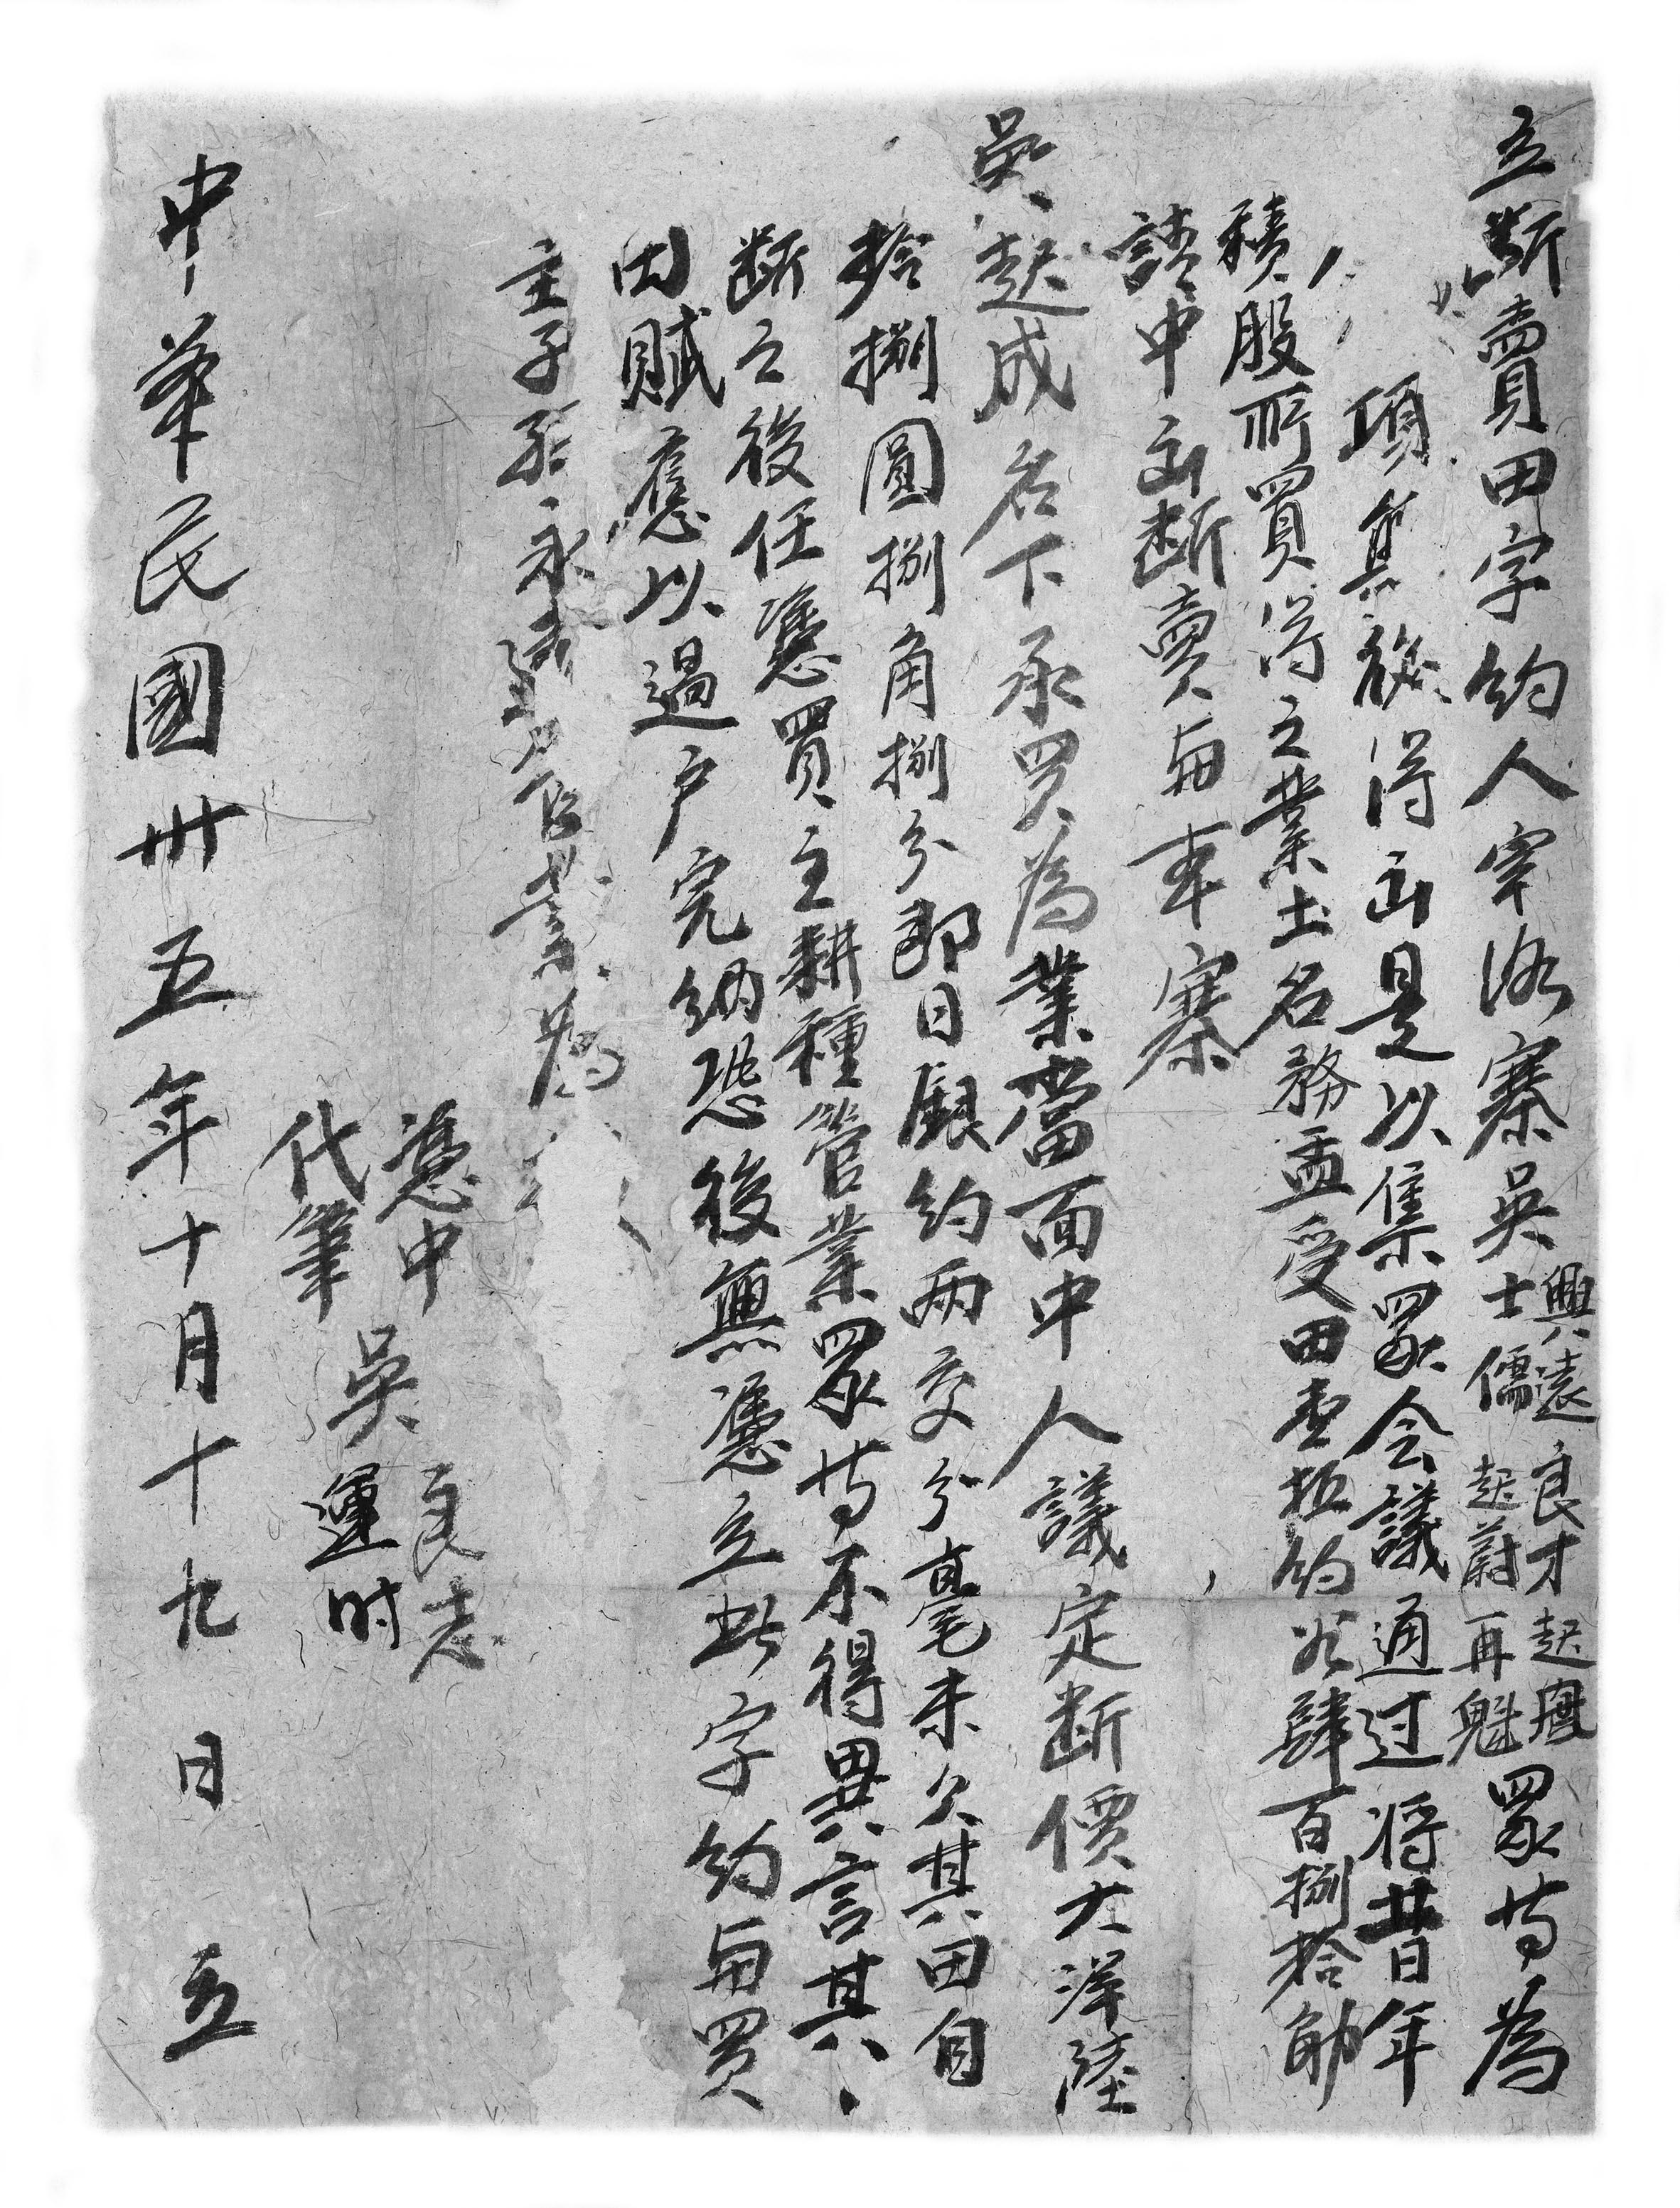 立斷賣田字約人宰洛寨吳興遠士儒良才起蔚起國再魁眾等為
項無後得出是以集眾会議通过将昔年
積股所買得之業土名務孟受田壹坵約谷肆百捌拾觔
請中出斷賣與車寨
吳起成名下承買為業當面中人議定斷價大洋陸
拾捌圓捌角捌分即日銀約兩交分毫未欠其田自
斷之後任憑買主耕種管業眾等不得異言其
田賦應以過户完納恐後無憑立此字約與買
主子孫永遠管業為
憑中 吳 良志
代筆 運时
中華民國卅五年十月十九日 立